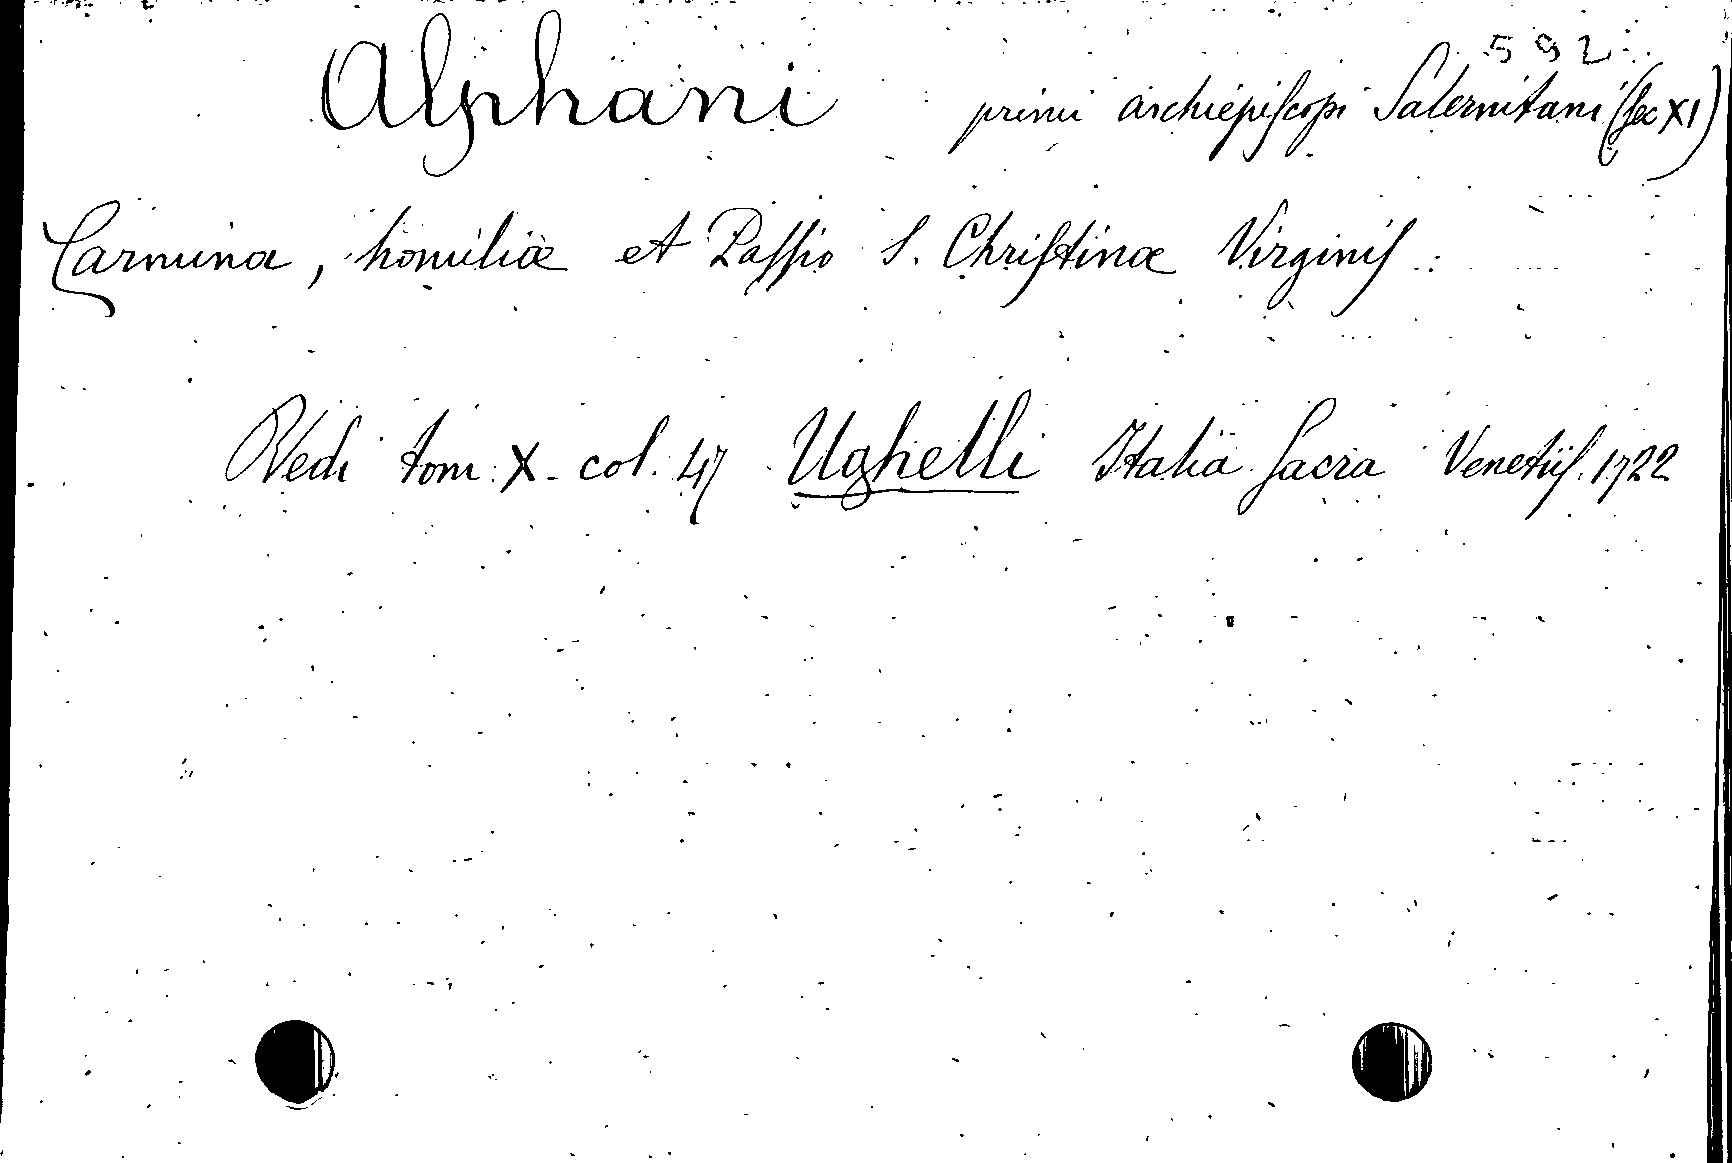 592
Alphani primi archiepiſcopi Salernitani (ſec XI)
Carmina, homiliæ et Paſſio S. Chriſtinæ Virginiſ
Vedi tom. X. col. 47 Ughelli Italia ſacra Venetiiſ. 1722